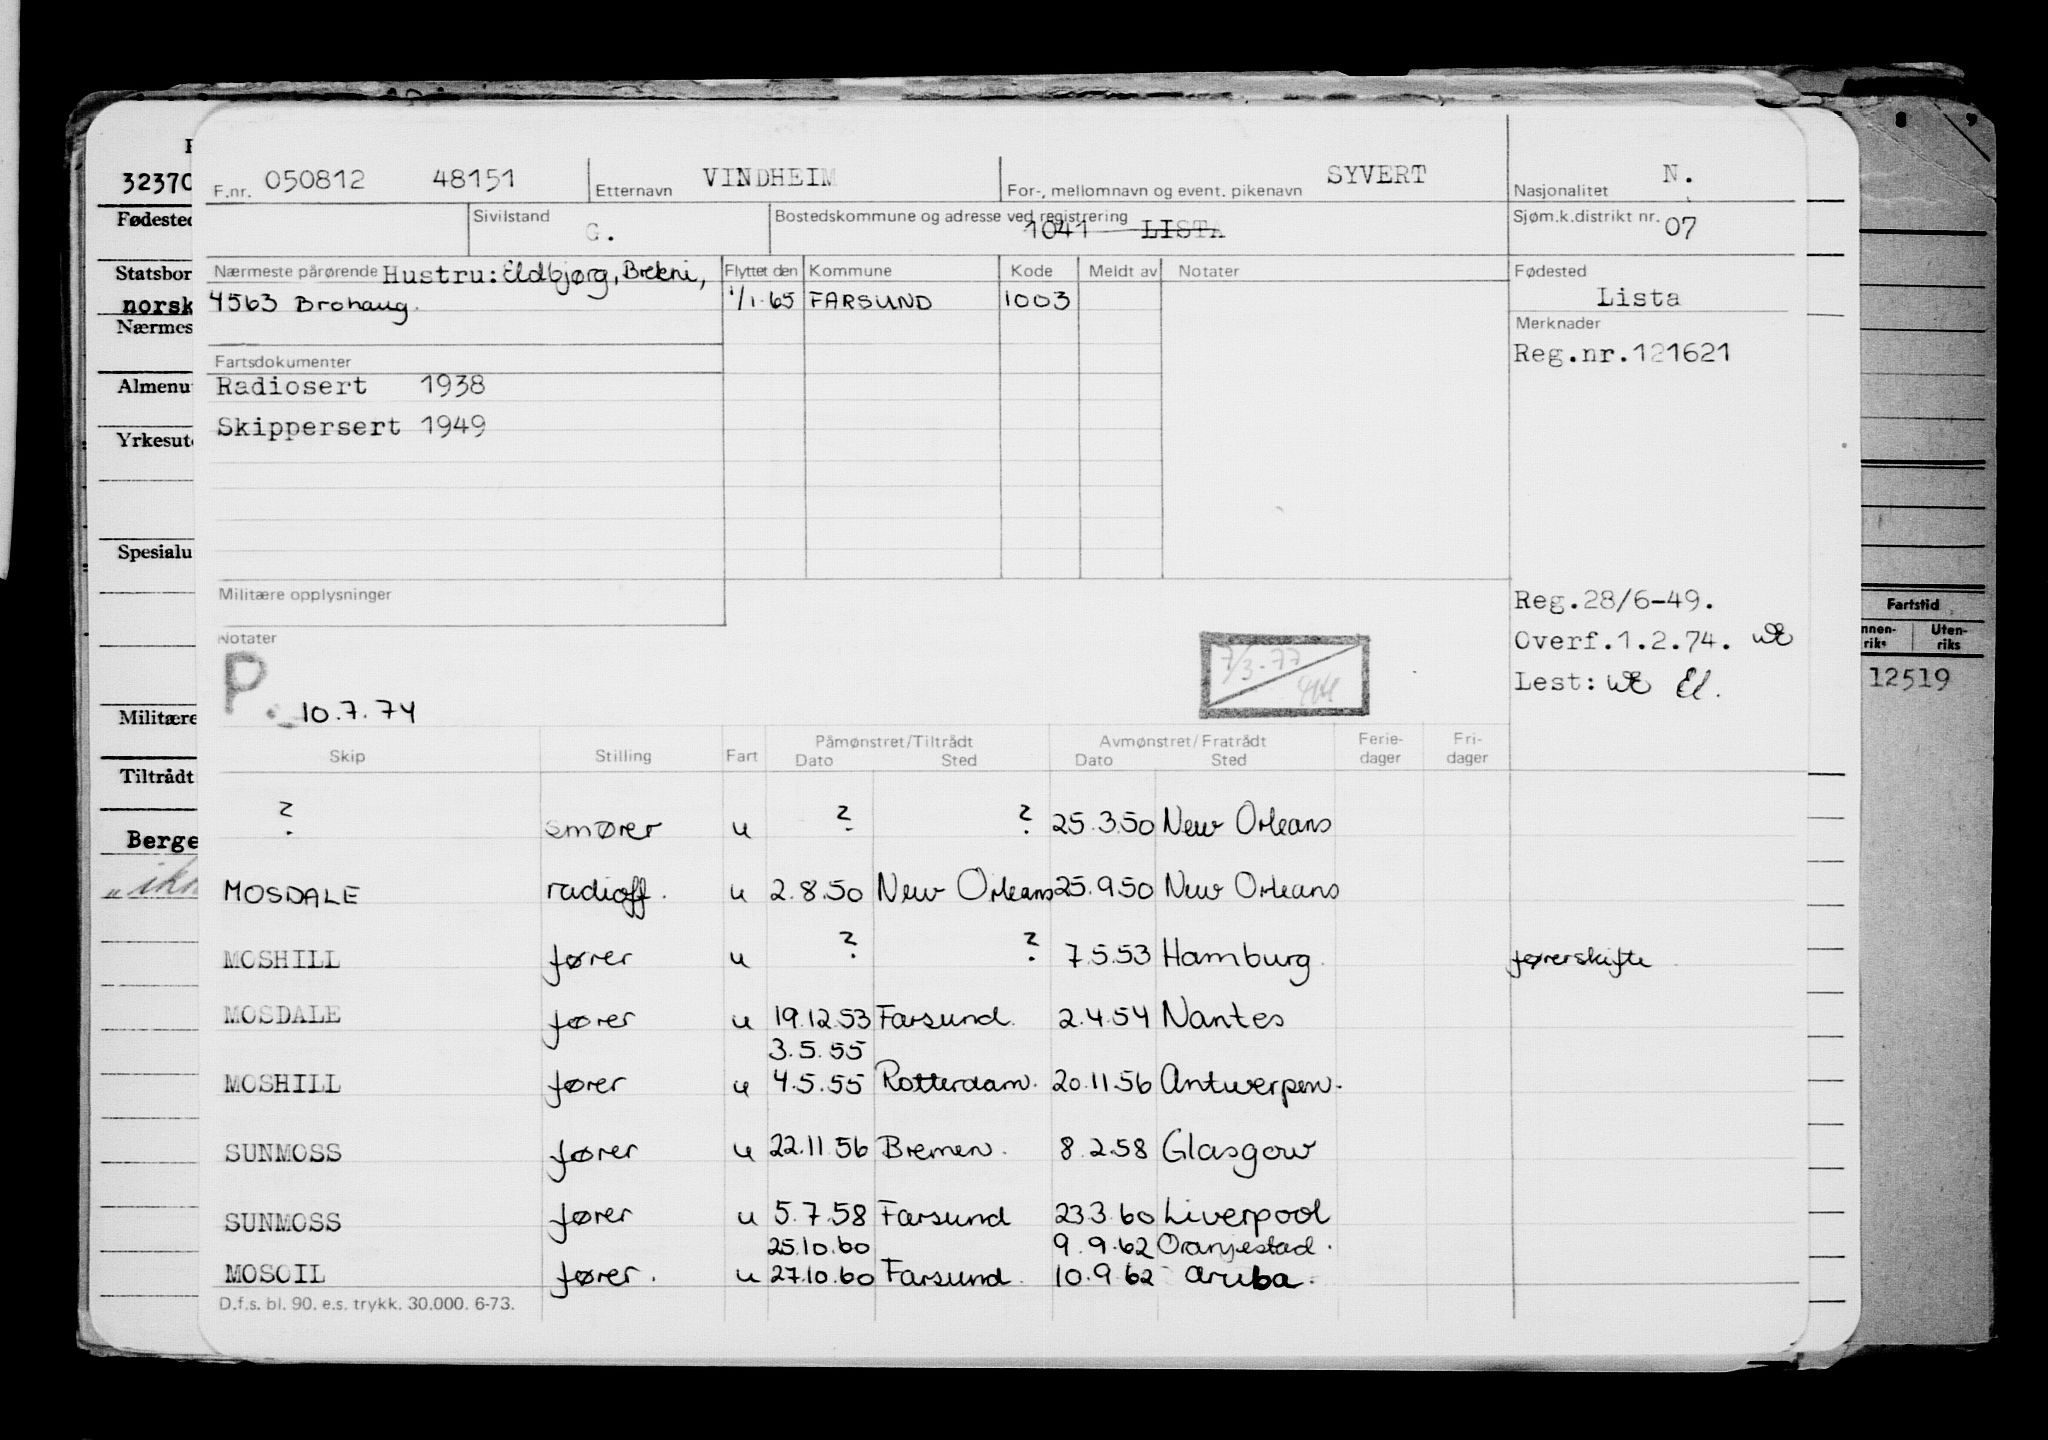 32370
F.nr. 050812 48151 Etternavn VINDHEIM For-, mellomnavn og event. pikenavn SYVERT Nasjonalitet N.
Fødested
Sivilstand G. Bostedskommune og adresse ved registrering 1041 LISTA Sjøm.k.distrikt nr. 07
Statsbor
Nærmeste pårørende Hustru: Eldbjørg, Brekni, Flyttet den Kommune Kode Meldt av Notater Fødested
norsk 4563 Brohaug. 1/1-65 FARSUND 1003 Lista
Nærmes
Merknader
Fartsdokumenter Reg.nr.121621
Almenu Radiosert 1938
Skippersert 1949
Yrkesut
Spesialu
Militære opplysninger Reg.28/6-49.
Fartstid
Notater Overf.1.2.74.
nnen-riks Uten-riks
P. 10.7.74 7/3-77 Lest: El.
12519
Militære
Skip Stilling Fart Påmønstret/Tiltrådt Dato Sted Avmønstret/Fratrådt Dato Sted Ferie-dager Fri-dager
Tiltrådt
? smører u ? ? 25.3.50 New Orleans
Berge
MOSDALE radioff. u 2.8.50 New Orleans 25.9.50 New Orleans
MOSHILL fører u ? ? 7.5.53 Hamburg førerskifte
MOSDALE fører u 19.12.53 Farsund. 2.4.54 Nantes
3.5.55
MOSHILL fører u 4.5.55 Rotterdam. 20.11.56 Antwerpen.
SUNMOSS fører u 22.11.56 Bremen. 8.2.58 Glasgow
SUNMOSS fører u 5.7.58 Farsund 23.3.60 Liverpool
25.10.60 9.9.62 Oranjestad.
MOSOIL fører. u 27.10.60 Farsund. 10.9.62 Aruba.
D.f.s. bl. 90. e.s. trykk. 30.000. 6-73.